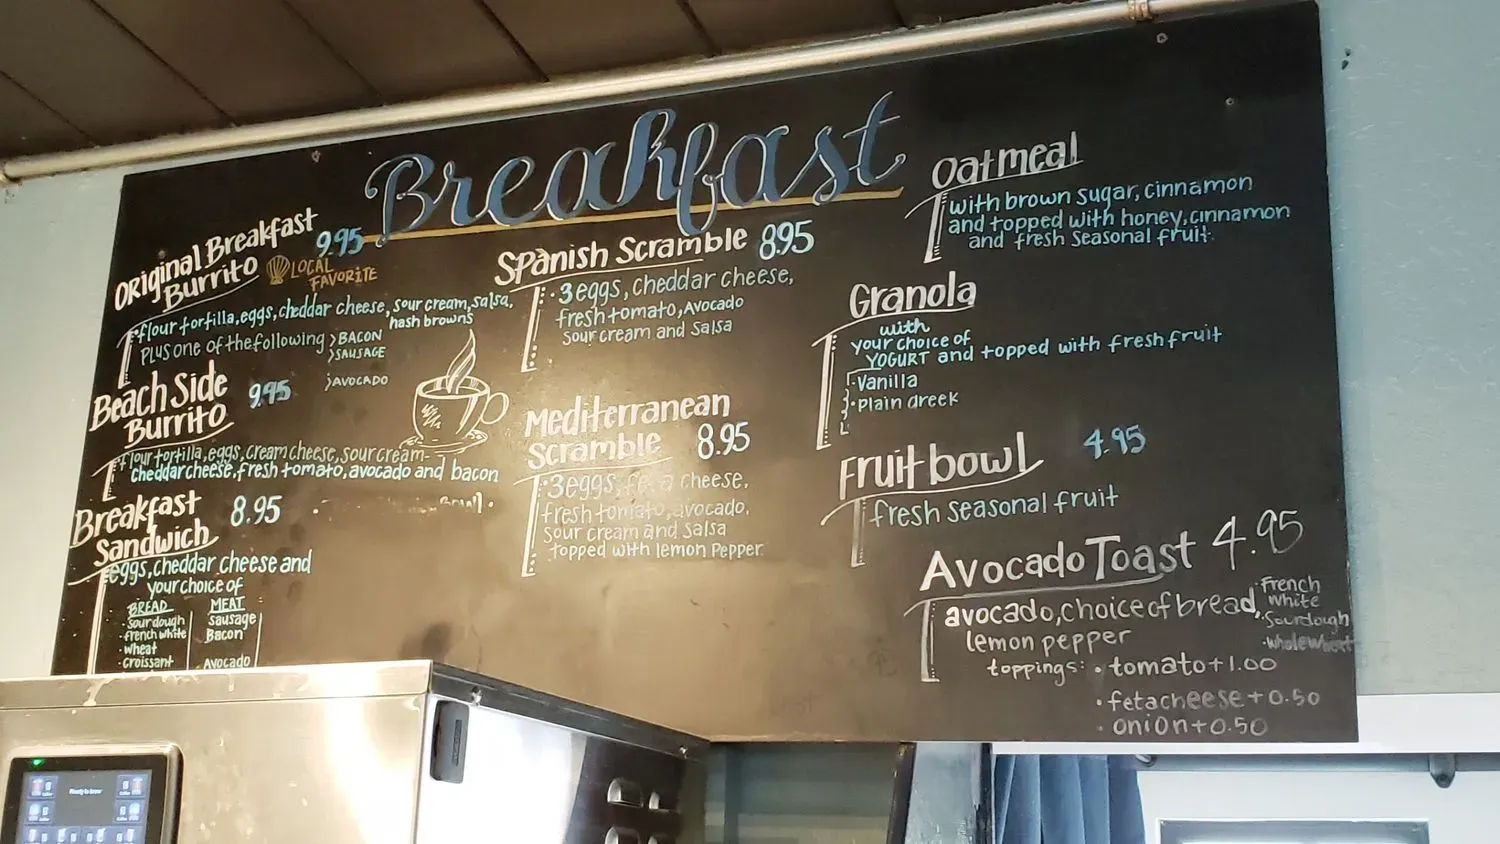 Breakfast
Original Breakfast
Burrito
9.95
LOCAL
FAVORITE
flour tortilla, eggs, cheddar cheese, sour cream, salsa,
hash browns
PLUS one of the following
>BACON
>SAUSAGE
>AVOCADO
Beach Side
Burrito
9.95
flour tortilla, eggs, cream cheese, sour cream
cheddar cheese, fresh tomato, avocado and bacon
Breakfast
Sandwich
8.95
eggs, cheddar cheese and
your choice of
BREAD
Sourdough
french white
wheat
croissant
MEAT
sausage
Bacon
Avocado
Spanish Scramble 8.95
3 eggs, cheddar cheese,
fresh tomato, Avocado
sour cream and salsa
Mediterranean
Scramble
8.95
3 eggs, feta cheese,
fresh tomato, avocado,
sour cream and salsa
topped with lemon pepper
Oatmeal
with brown sugar, cinnamon
and topped with honey, cinnamon
and fresh seasonal fruit.
Granola
with
your choice of
YOGURT and topped with fresh fruit
·Vanilla
·Plain Greek
Fruit bowl 4.95
fresh seasonal fruit
Avocado Toast 4.95
avocado, choice of bread,
lemon pepper
·French
White
·Sourdough
·whole wheat
toppings: · tomato+1.00
· feta cheese+0.50
· onion+0.50